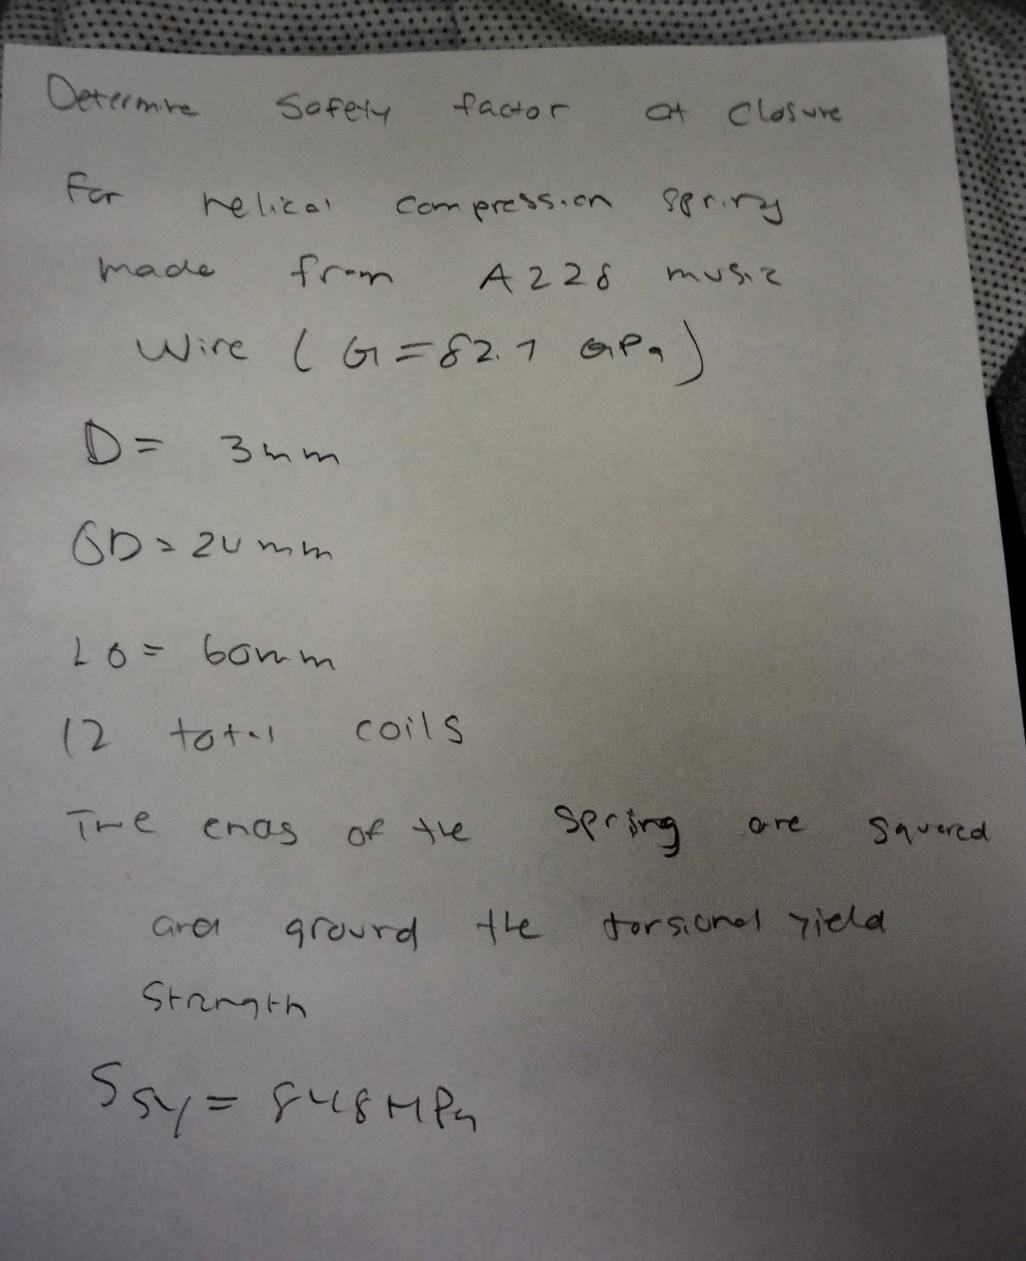 Determine Safety factor at closure
For helical compression spring
made from A228 music
Wire (G=82.7 GPa)
D= 3mm
OD=20mm
L0= 60mm
12 total coils
The ends of the spring are squared
and ground the torsional yield
Strength
Ssy= 848MPa